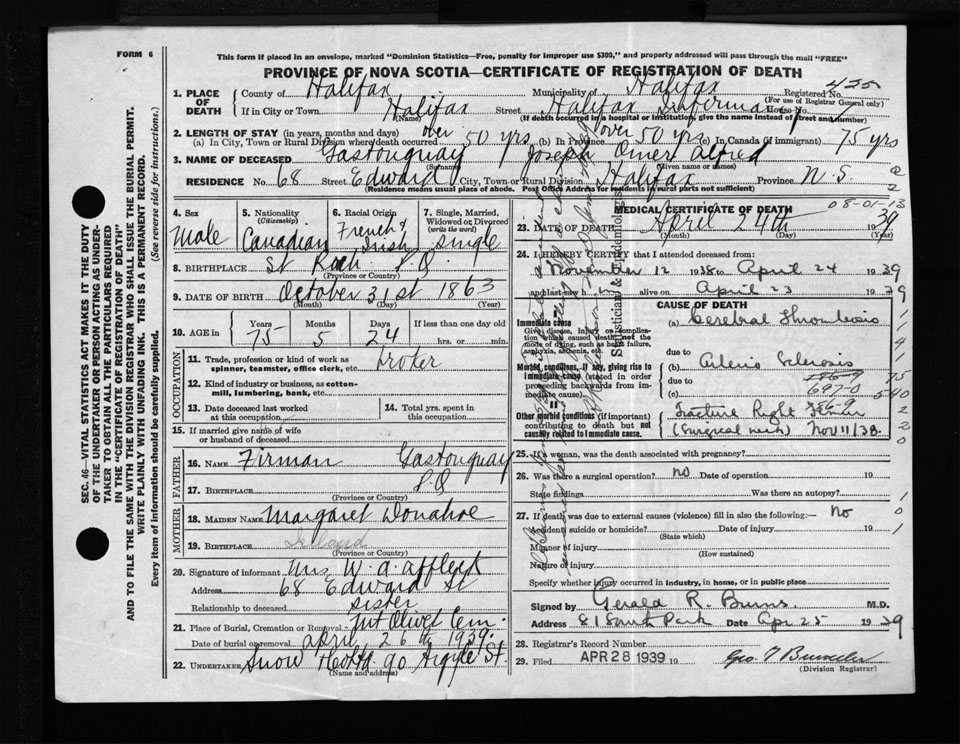 FORM 6
This form if placed in an envelope, marked "Dominion Statistics—Free, penalty for improper use $300," and properly addressed will pass through the mail "FREE"
PROVINCE OF NOVA SCOTIA—CERTIFICATE OF REGISTRATION OF DEATH
1. PLACE OF DEATH County of Halifax Municipality of Halifax Registered No. 425
(For use of Registrar General only)
If in City or Town Halifax Street Halifax Infirmary House No.
(Name) (If death occurred in a hospital or institution, give the name instead of street and number)
2. LENGTH OF STAY (in years, months and days)
(a) In City, Town or Rural Division where death occurred over 50 yrs (b) In Province over 50 yrs (c) In Canada (if immigrant) 75 yrs
3. NAME OF DECEASED Gastonguay Joseph Omer Alfred
(Surname) (Given name or names)
RESIDENCE No. 68 Street Edward City, Town or Rural Division Halifax Province N.S.
(Residence means usual place of abode. Post Office Address for residents in rural parts not sufficient)
4. Sex Male
5. Nationality (Citizenship) Canadian
6. Racial Origin French & Irish
7. Single, Married, Widowed or Divorced (write the word) single
8. BIRTHPLACE St Roch P.Q.
(Province or Country)
9. DATE OF BIRTH October 31st 1863
(Month) (Day) (Year)
10. AGE in Years 75 Months 5 Days 24 If less than one day old hrs. or min.
OCCUPATION
11. Trade, profession or kind of work as spinner, teamster, office clerk, etc. broker
12. Kind of industry or business, as cotton-mill, lumbering, bank, etc.
13. Date deceased last worked at this occupation
14. Total yrs. spent in this occupation
15. If married give name of wife or husband of deceased
FATHER
16. NAME Firman Gastonguay
17. BIRTHPLACE P.Q.
(Province or Country)
MOTHER
18. MAIDEN NAME Margaret Donahoe
19. BIRTHPLACE Ireland
(Province or Country)
20. Signature of informant Mrs W. A. Affleck
Address 68 Edward St
Relationship to deceased sister
21. Place of Burial, Cremation or Removal Mt Olivet Cem.
Date of burial or removal April 26th 1939.
22. UNDERTAKER Snow & Co Ltd 90 Argyle St.
(Name and address)
MEDICAL CERTIFICATE OF DEATH
08-01-13
23. DATE OF DEATH April 24th 1939
(Month) (Day) (Year)
24. I HEREBY CERTIFY that I attended deceased from:
November 12 1938 to April 24 1939
and last saw him alive on April 23 1939
CAUSE OF DEATH
Immediate cause
Give disease, injury or complication which caused death not the mode of dying, such as heart failure, asphyxia, asthenia, etc.
(a) Cerebral Thrombosis
due to
Morbid conditions, if any, giving rise to immediate cause (stated in order preceding backwards from immediate cause).
(b) Arterio Sclerosis
due to
(c)
Other morbid conditions (if important) contributing to death but not causally related to immediate cause.
Fracture Right Femur
(Surgical neck) Nov 11/38
25. If a woman, was the death associated with pregnancy?
26. Was there a surgical operation? no Date of operation 19
State findings Was there an autopsy?
27. If death was due to external causes (violence) fill in also the following:— No
Accident suicide or homicide? Date of injury 19
(State which)
Manner of injury
(How sustained)
Nature of injury
Specify whether injury occurred in industry, in home, or in public place
Signed by Gerald R. Burns. M.D.
Address 81 South Park Date Apr 25 1939
28. Registrar's Record Number
29. Filed APR 28 1939 19
(Division Registrar)
SEC. 46—VITAL STATISTICS ACT MAKES IT THE DUTY OF THE UNDERTAKER OR PERSON ACTING AS UNDERTAKER TO OBTAIN ALL THE PARTICULARS REQUIRED IN THE "CERTIFICATE OF REGISTRATION OF DEATH" AND TO FILE THE SAME WITH THE DIVISION REGISTRAR WHO SHALL ISSUE THE BURIAL PERMIT.
WRITE PLAINLY WITH UNFADING INK. THIS IS A PERMANENT RECORD.
Every item of information should be carefully supplied. (See reverse side for instructions.)